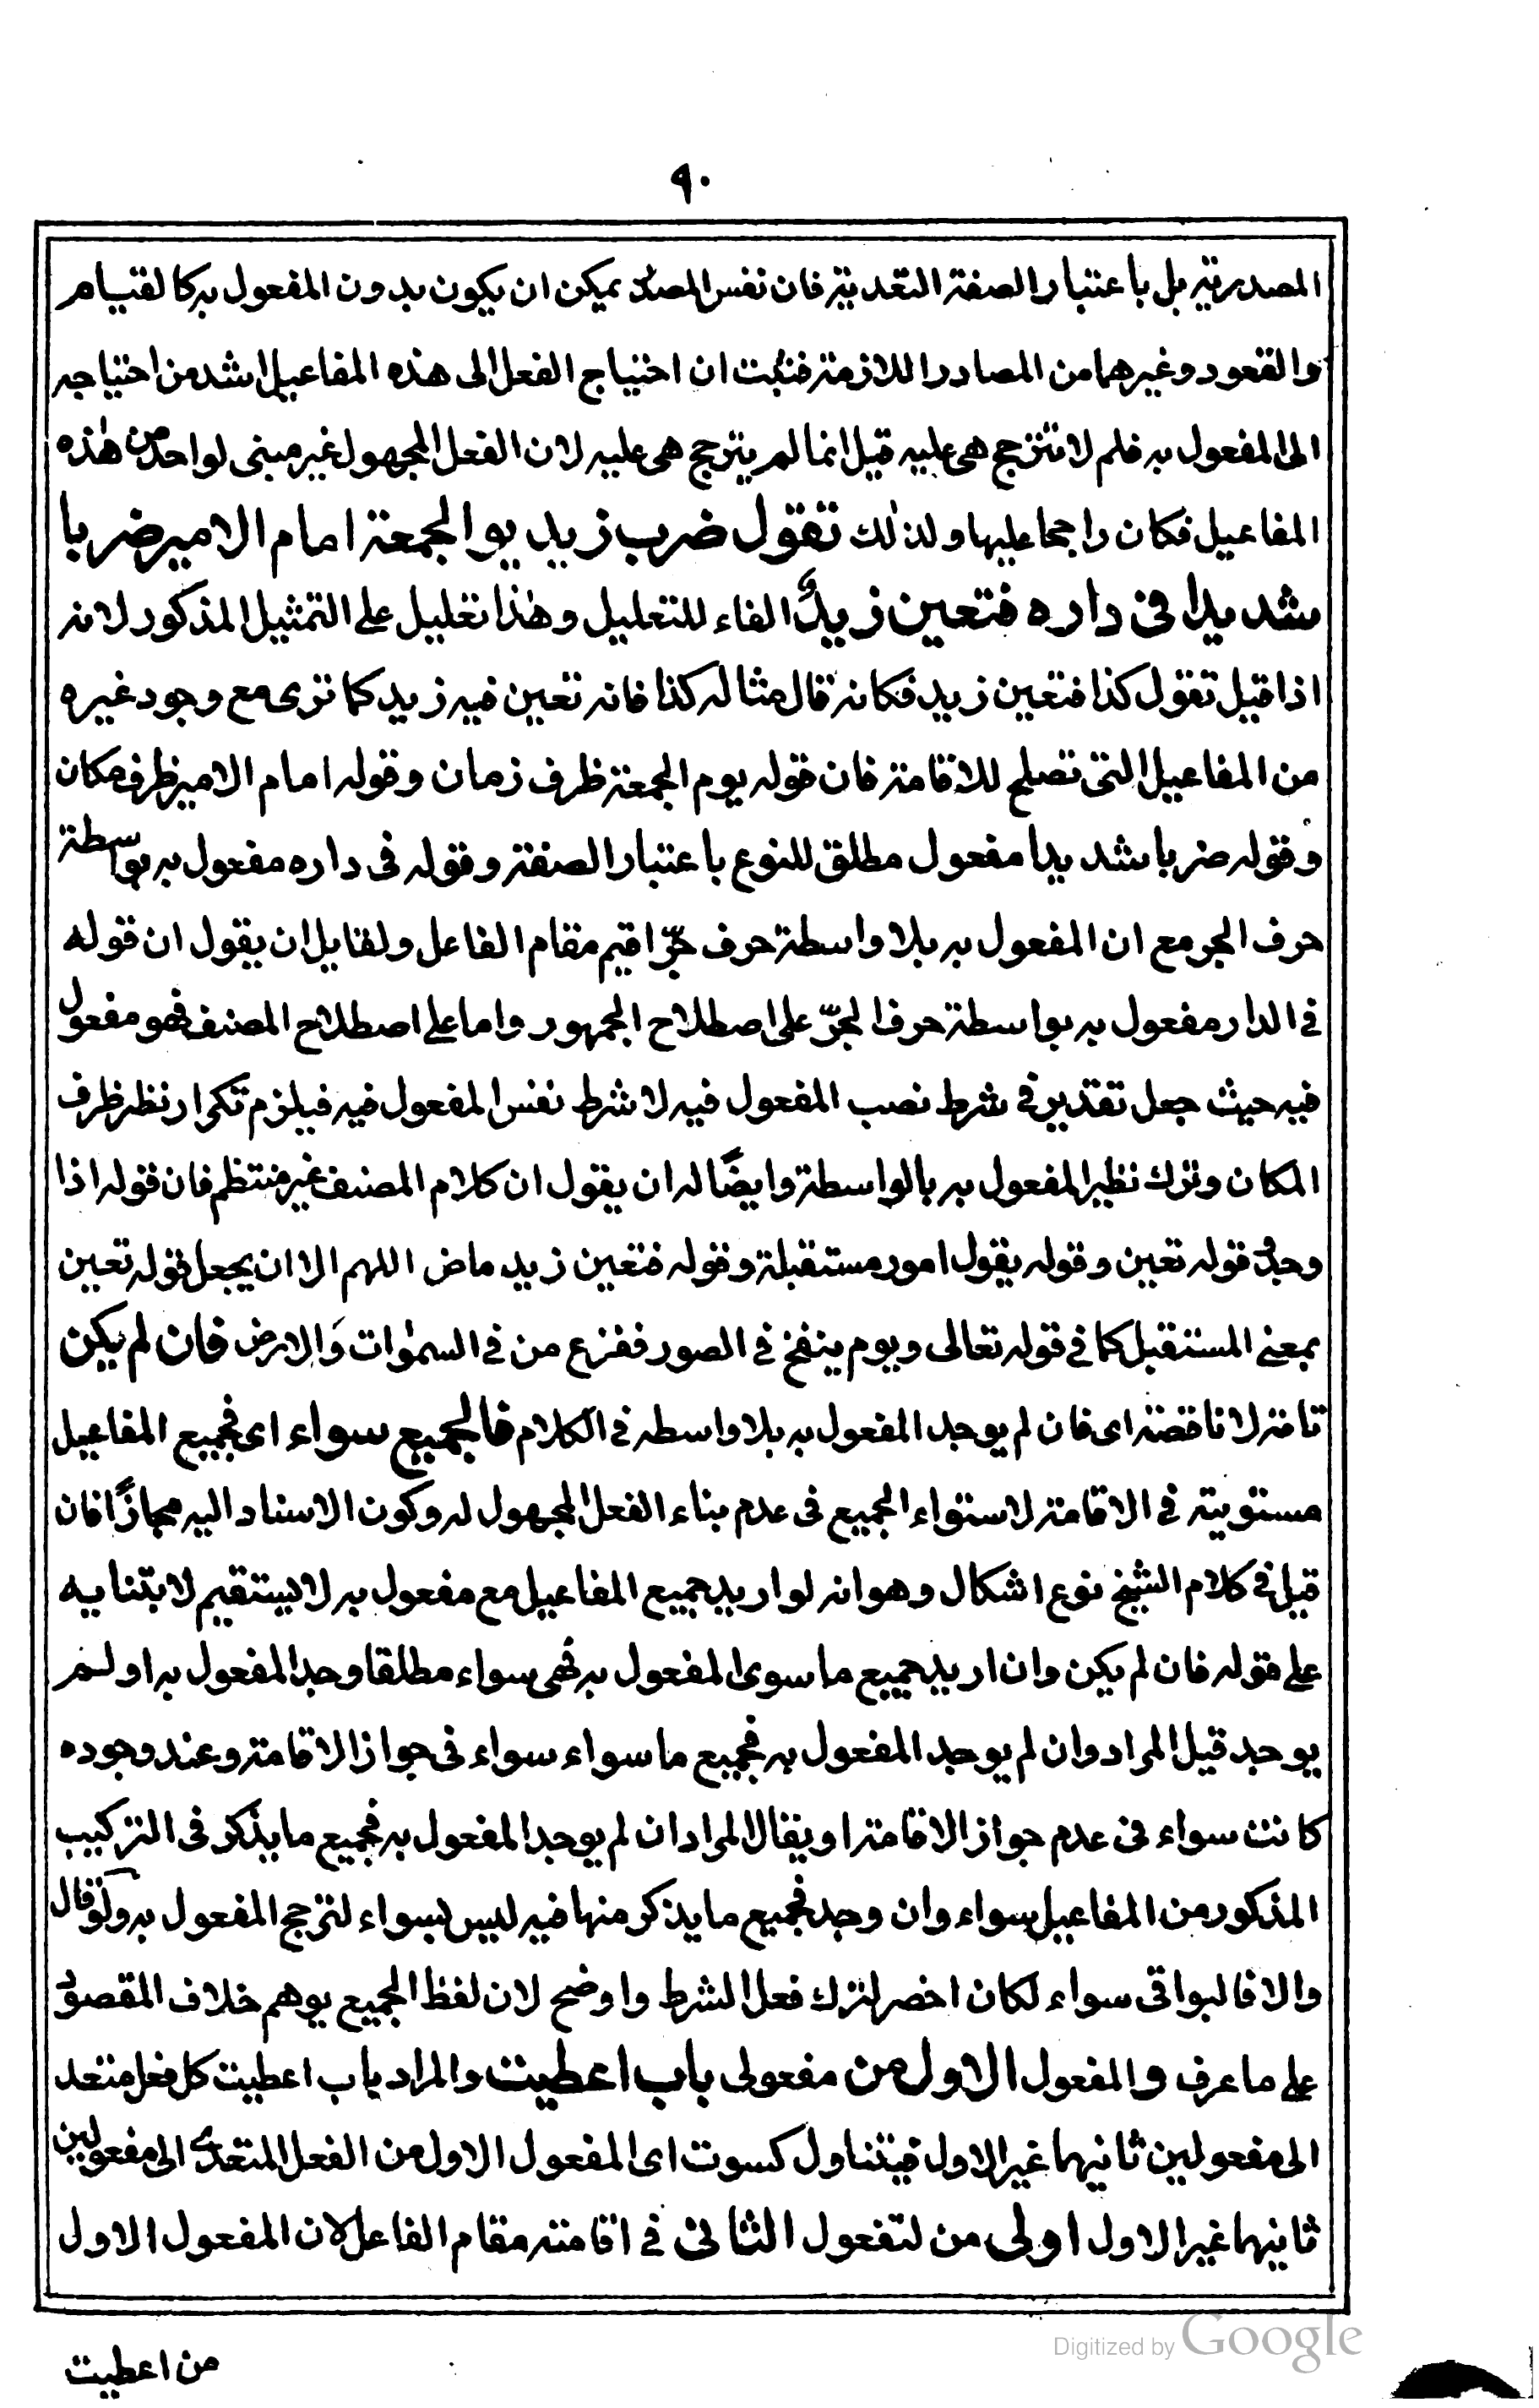 ٩٠
المصدرية بل باعتبار الصفة التعدية فان نفس المصادر يمكن ان يكون بدون المفعول به كالقيام
والقعود وغيرهما من المصادر اللازمة فثبت ان احتياج الفعل الى هذه المفاعيل اشد من احتياجه
الى المفعول به فلم لا تترجح هى عليه قيل انما لم يترجح هى عليه لان الفعل المجهول غير مبنى لواحد من هٰذه
المفاعيل فكان راجحا عليها ولذٰلك تقول ضرب زيد يوم الجمعة امام الامير ضربا
شديدا فى داره فتعين زيدٌ الفاء للتعليل وهٰذا تعليل على التمثيل المذكور لانه
اذا قيل تقول كذا فتعين زيد فكانه قال مثاله كذا فانه تعين فيه زيد كما ترى مع وجود غيره
من المفاعيل التى تصلح للاقامة فان قوله يوم الجمعة ظرف زمان وقوله امام الامير ظرف مكان
وقوله ضربا شديدا مفعول مطلق للنوع باعتبار الصفة وقوله فى داره مفعول به بواسطة
حرف الجر مع ان المفعول به بلا واسطة حرف جرّ اقيم مقام الفاعل ولقايل ان يقول ان قوله
فى الدار مفعول به بواسطة حرف الجرّ على اصطلاح الجمهور واما على اصطلاح المصنف فهو مفعول
فيه حيث جعل تقدير فى شرط نصب المفعول فيه لا شرط نفس المفعول فيه فيلزم تكرار نظر ظرف
المكان وترك نظير المفعول به بالواسطة وايضًا له ان يقول ان كلام المصنف غير منتظم فان قوله اذا
وجد فى قوله تعين وقوله يقول امور مستقبلة وقوله فتعين زيد ماض اللهم الا ان يجعل قوله تعين
بمعنى المستقبل كما فى قوله تعالى ويوم ينفخ فى الصور ففزع من فى السمٰوات وَالارض فان لم يكن
تامة لا ناقصة اى فان لم يوجد المفعول به بلا واسطه فى الكلام فالجميع سواء اى فجميع المفاعيل
مستوية فى الاقامة لاستواء الجميع فى عدم بناء الفعل المجهول له وكون الاسناد اليه مجازًا فان
قيل فى كلام الشيخ نوع اشكال وهو انه لو اريد جميع المفاعيل مع مفعول به لا يستقيم لابتنايه
على قوله فان لم يكن وان اريد جميع ما سوى المفعول به فهى سواء مطلقا وجد المفعول به او لم
يوجد قيل المراد وان لم يوجد المفعول به فجميع ما سواء سواء فى جواز الاقامة وعند وجوده
كانت سواء فى عدم جواز الاقامة او يقال المراد ان لم يوجد المفعول به فجميع ما يذكر فى التركيب
المذكور من المفاعيل سواء وان وجد فجميع ما يذكر منها فيه ليس بسواء لترجح المفعول به ولو قال
والا فالبواقى سواء لكان اخصر لترك فعل الشرط واوضح لان لفظ الجميع يوهم خلاف المقصود
على ما عرف والمفعول الاول من مفعولى باب اعطيت والمراد باب اعطيت كل فعل متعد
الى مفعولين ثانيهما غير الاول فيتناول كسوت اى المفعول الاول من الفعل المتعدى الى مفعولين
ثانيهما غير الاول اولى من لتفعول الثانى فى اقامته مقام الفاعل لان المفعول الاول
من اعطيت
Digitized by Google